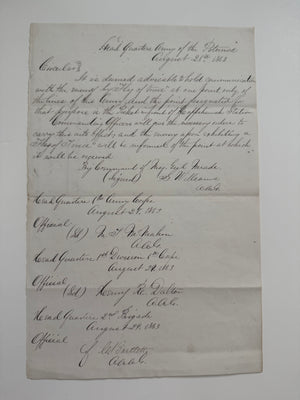 Head Quarters Army of the Potomac
August 28th 1863
Circular
It is deemed advisable to hold communication
with the enemy by Flag of Truce at one point only of
the lines of this Army and the point designated for
that purpose is the
Commanding Officers will give the necessary orders to
carry this into effect, and the enemy upon exhibiting a
Flag of Truce will be informed of the point at which
it will be received
By Command of Maj Genl Meade
(Signed) S. Williams
A.A.G.
Head Quarters 6th Army Corps
August 29. 1863
Official
(Sd) M. T. McMahon
A.A.G.
Head Quarters 1st Division 6th Corps
August 29. 1863
Official
(Sd) Henry R. Dalton
A.A.G.
Head Quarters 2nd Brigade
August 29. 1863
Official
Bartlett
A.A.A.G.